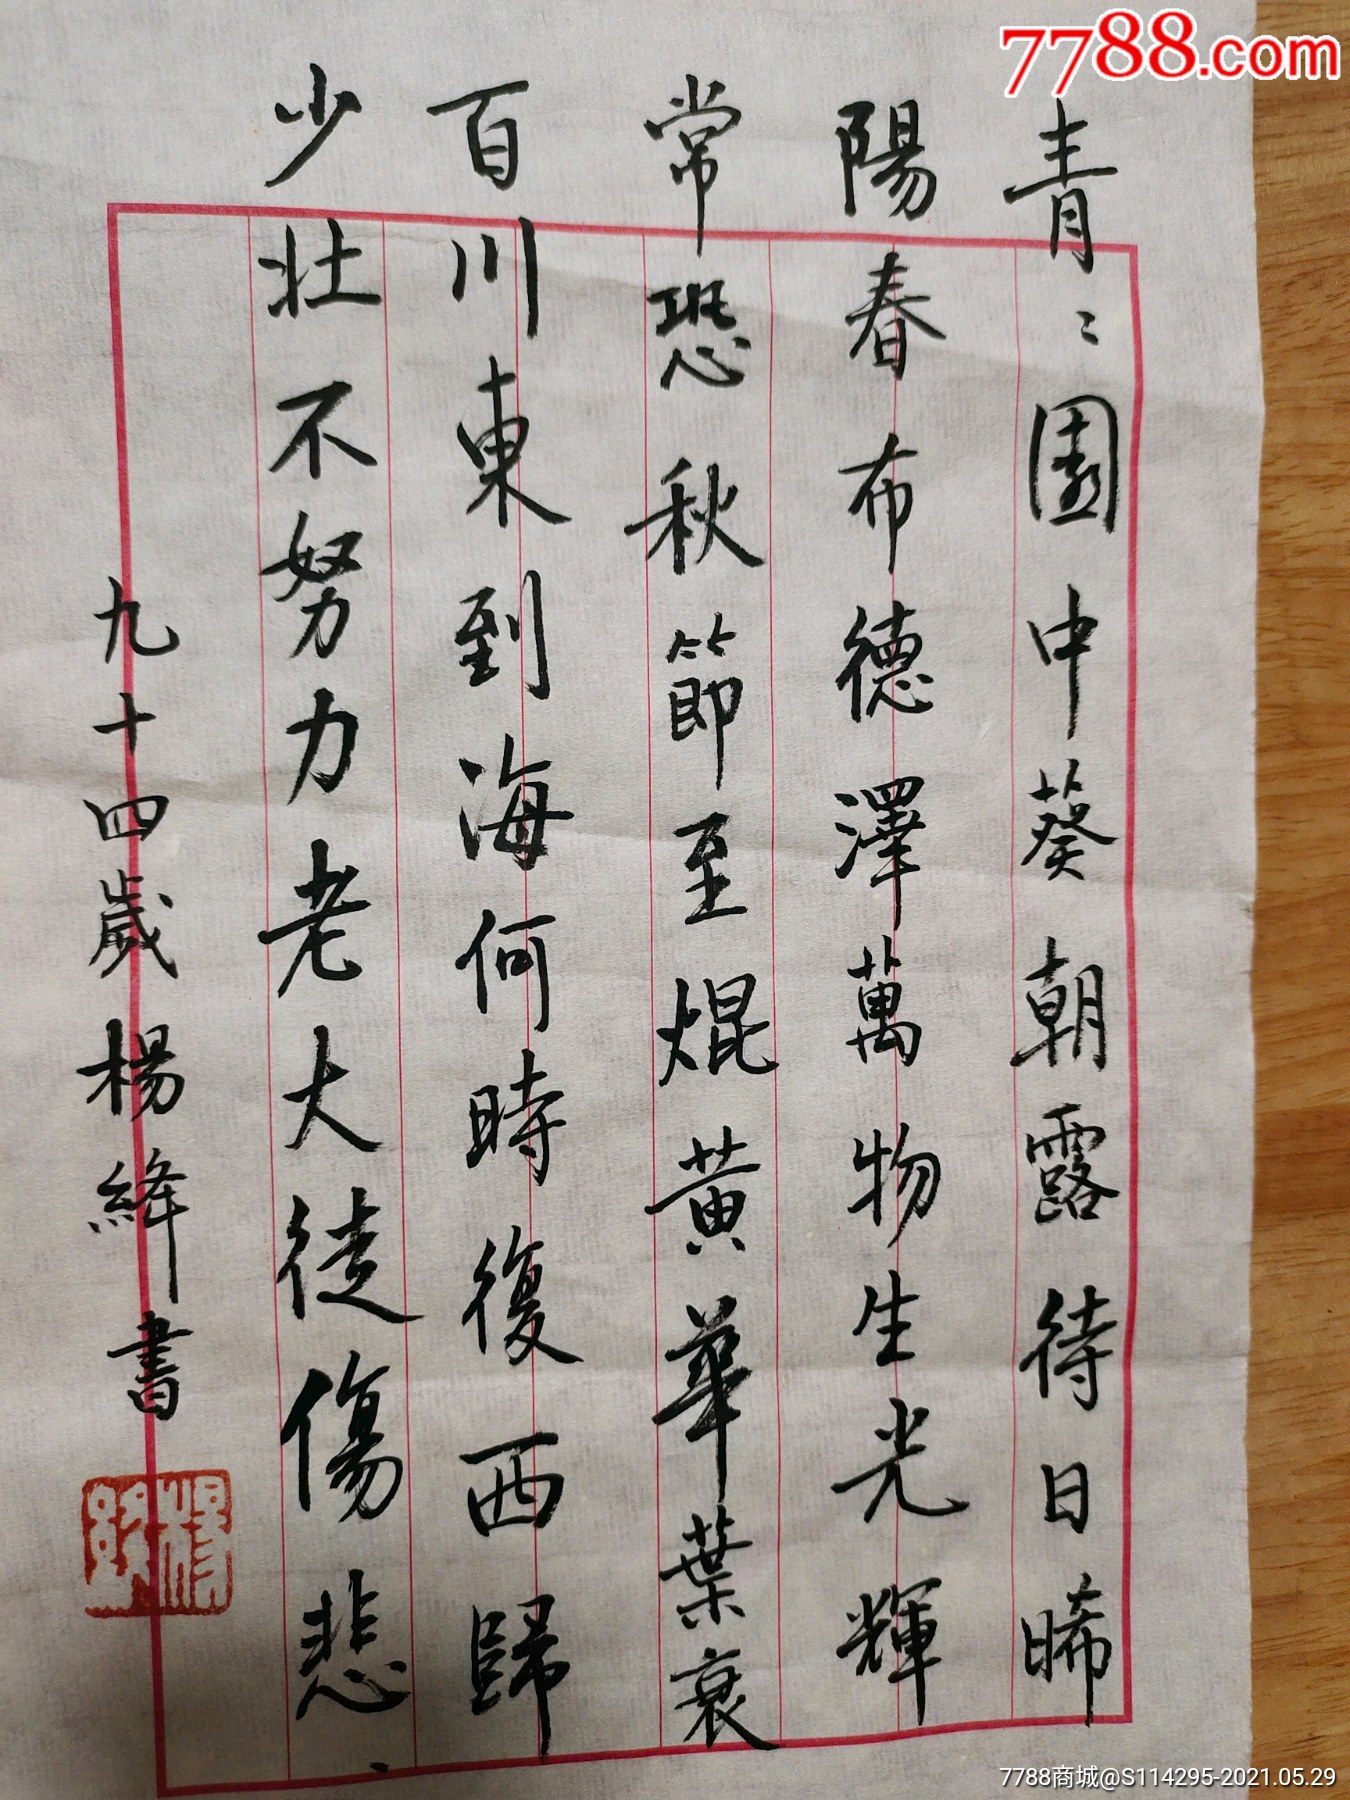 7788.com
青〻園中葵朝露待日晞
陽春布德澤萬物生光輝
常恐秋節至焜黄華葉衰
百川東到海何時復西歸
少壯不努力老大徒傷悲、
九十四歲楊絳書
7788商城@S114295-2021.05.29